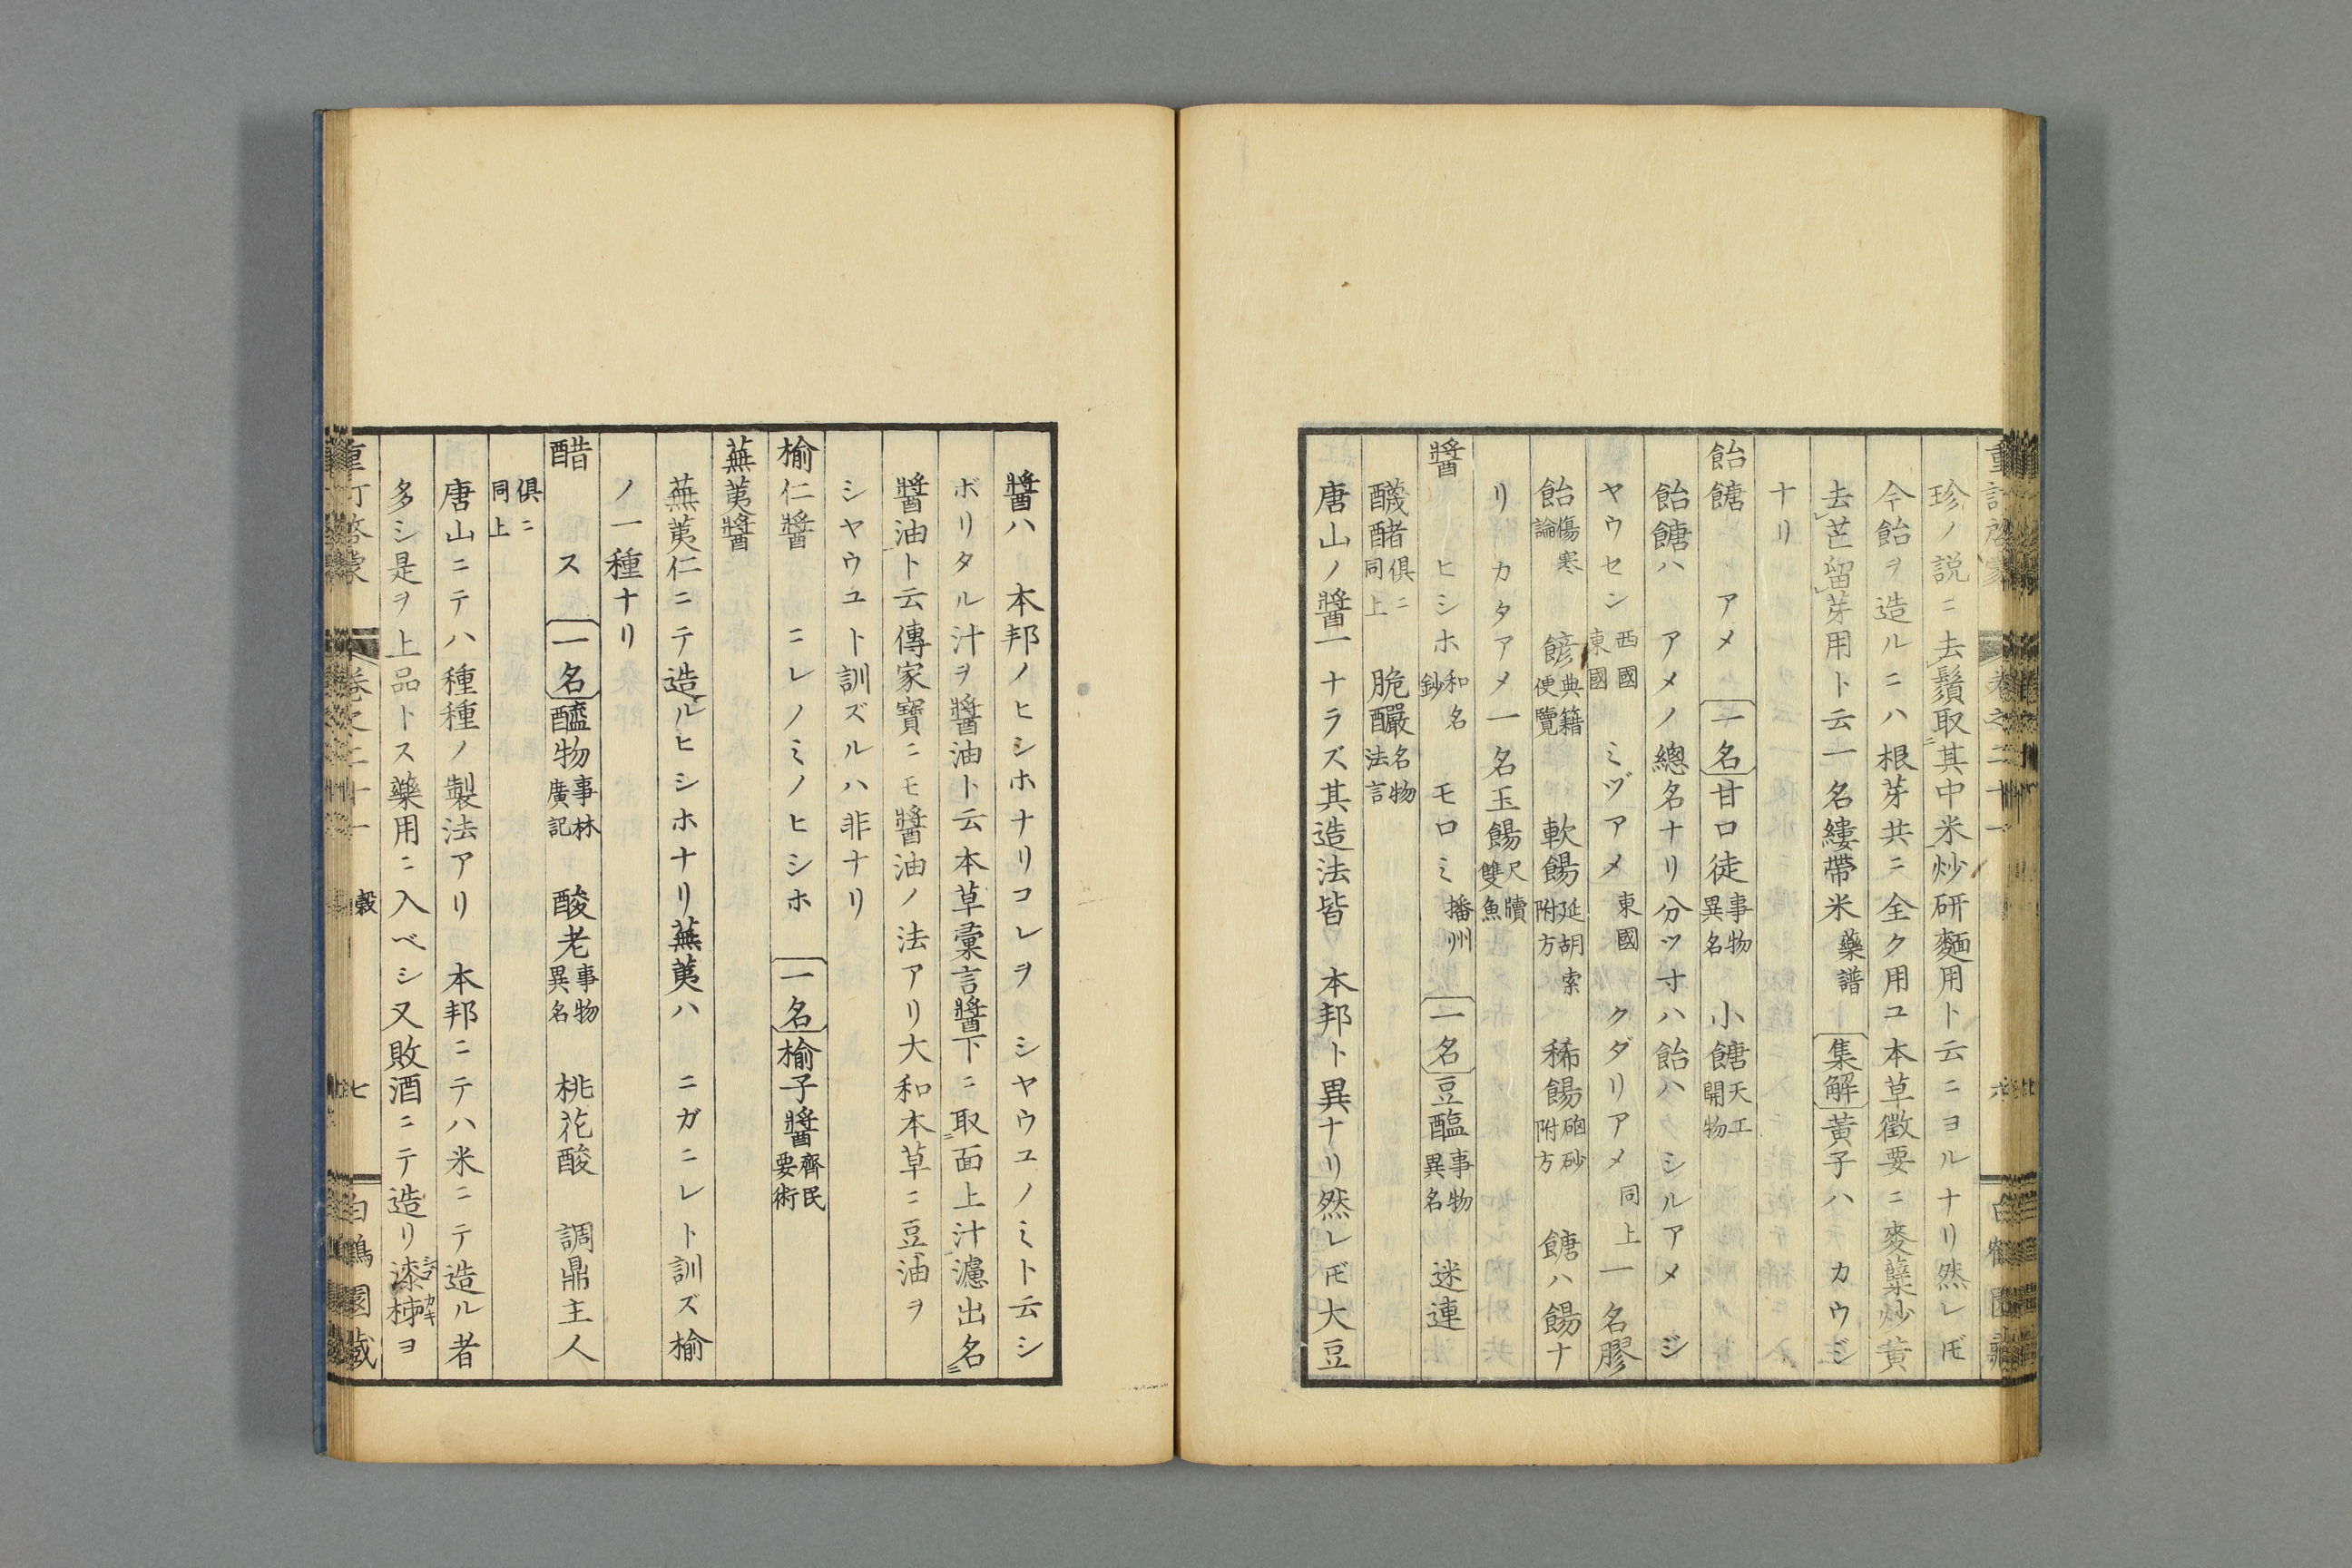 珍ノ説ニ去鬚取其中米炒研麵用ト云ニヨルナリ然レ𪜈
今飴ヲ造ルニハ根芽共ニ全ク用ユ本草徵要ニ麥蘖炒黃
去芒留芽用ト云一名縷帶米藥譜 集解黃子ハ カウジ
ナリ
飴餹 アメ 一名甘口徒事物異名 小餹天工開物
飴餹ハ アメノ總名ナリ分ツ寸ハ飴ハ シルアメ ジ
ヤウセン西國東國 ミヅアメ東國 クダリアメ同上一名膠
飴傷寒論 餰典籍便覽 軟餳延胡索附方 稀餳硇砂附方 餹ハ餳ナ
リ カタアメ一名玉餳尺牘雙魚
醬 ヒシホ和名鈔 モロミ播州 一名豆醢事物異名 迷連
醆䣝俱ニ同上 脆釅名物法言
唐山ノ醬一ナラズ其造法皆 本邦ト異ナリ然レ𪜈大豆
醬ハ 本邦ノヒシホナリコレヲ シヤウユノミト云シ
ボリタル汁ヲ醬油ト云本草彙言醬下ニ取面上汁濾出名
醬油ト云傳家寶ニモ醬油ノ法アリ大和本草ニ豆油ヲ
シヤウユト訓ズルハ非ナリ
榆仁醬 ニレノミノヒシホ 一名榆子醬齊民要術
蕪荑醬
蕪荑仁ニテ造ルヒシホナリ蕪荑ハ ニガニレト訓ズ榆
ノ一種ナリ
醋 ス 一名醯物事林廣記 酸老事物異名 桃花酸 調鼎主人
俱ニ同上
唐山ニテハ種種ノ製法アリ 本邦ニテハ米ニテ造ル者
多シ是ヲ上品トス藥用ニ入ベシ又敗酒ニテ造リ漆柹ヨ